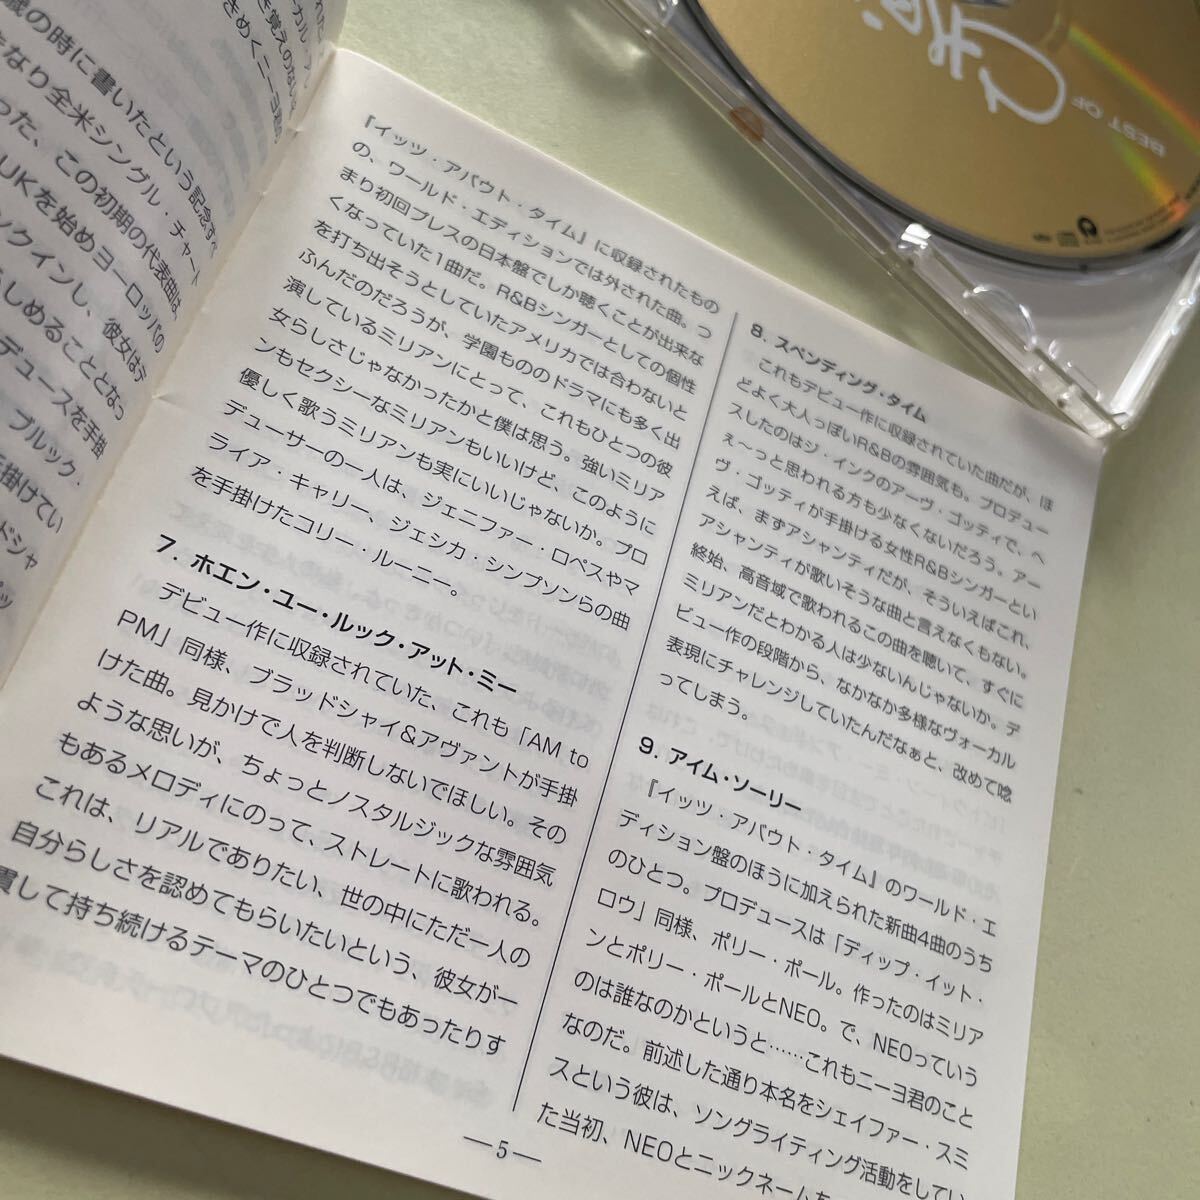 歳の時に書いたという記念すべ
なり全米シングル・チャート
った、この初期の代表曲は、
UKを始めヨーロッパの
ンクインし、彼女はデ
しめることとなっ
デュースを手掛
ブルック・
手掛けてい
ドシャ
『イッツ・アバウト・タイム』に収録されたもの
の、ワールド・エディションでは外された曲。つ
まり初回プレスの日本盤でしか聴くことが出来な
くなっていた1曲だ。R&Bシンガーとしての個性
を打ち出そうとしていたアメリカでは合わないと
ふんだのだろうが、学園もののドラマにも多く出
演しているミリアンにとって、これもひとつの彼
女らしさじゃなかったかと僕は思う。強いミリア
ンもセクシーなミリアンもいいけど、このように
優しく歌うミリアンも実にいいじゃないか。プロ
デューサーの一人は、ジェニファー・ロペスやマ
ライア・キャリー、ジェシカ・シンプソンらの曲
を手掛けたコリー・ルーニー。
7. ホエン・ユー・ルック・アット・ミー
デビュー作に収録されていた、これも「AM to
PM」同様、ブラッドシャイ&アヴァントが手掛
けた曲。見かけで人を判断しないでほしい。その
ような思いが、ちょっとノスタルジックな雰囲気
もあるメロディにのって、ストレートに歌われる。
これは、リアルでありたい、世の中にただ一人の
自分らしさを認めてもらいたいという、彼女が一
貫して持ち続けるテーマのひとつでもあったりす
8. スペンディング・タイム
これもデビュー作に収録されていた曲だが、ほ
どよく大人っぽいR&Bの雰囲気も。プロデュー
スしたのはジ・インクのアーヴ・ゴッティで、へ
ぇ〜っと思われる方も少なくないだろう。アー
ヴ・ゴッティが手掛ける女性R&Bシンガーとい
えば、まずアシャンティだが、そういえばこれ、
アシャンティが歌いそうな曲と言えなくもない。
終始、高音域で歌われるこの曲を聴いて、すぐに
ミリアンだとわかる人は少ないんじゃないか。デ
ビュー作の段階から、なかなか多様なヴォーカル
表現にチャレンジしていたんだなぁと、改めて唸
ってしまう。
9. アイム・ソーリー
『イッツ・アバウト・タイム』のワールド・エ
ディション盤のほうに加えられた新曲4曲のうち
のひとつ。プロデュースは「ディップ・イット・
ロウ」同様、ポリー・ポール。作ったのはミリア
ンとポリー・ポールとNEO。で、NEOっていう
のは誰なのかというと……これもニーヨ君のこと
なのだ。前述した通り本名をシェイファー・スミ
スという彼は、ソングライティング活動をしてい
た当初、NEOとニックネームを
—5—
BEST OF